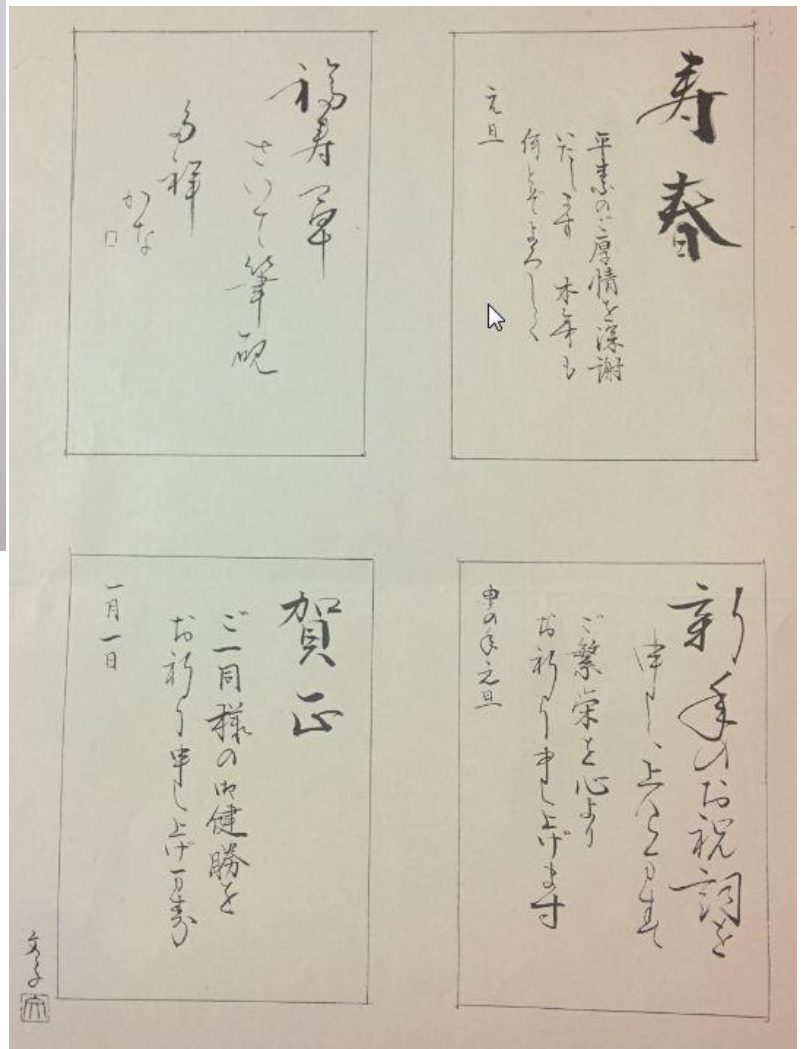 寿春
平素のご厚情を深謝
いたします 本年も
何とぞよろしく
元旦
福寿草
さいて筆硯
多祥
かな
新年のお祝詞を
申し上げます
ご繁栄を心より
お祈り申し上げます
申の年元旦
賀正
ご一同様の御健勝を
お祈り申し上げます
一月一日
文子